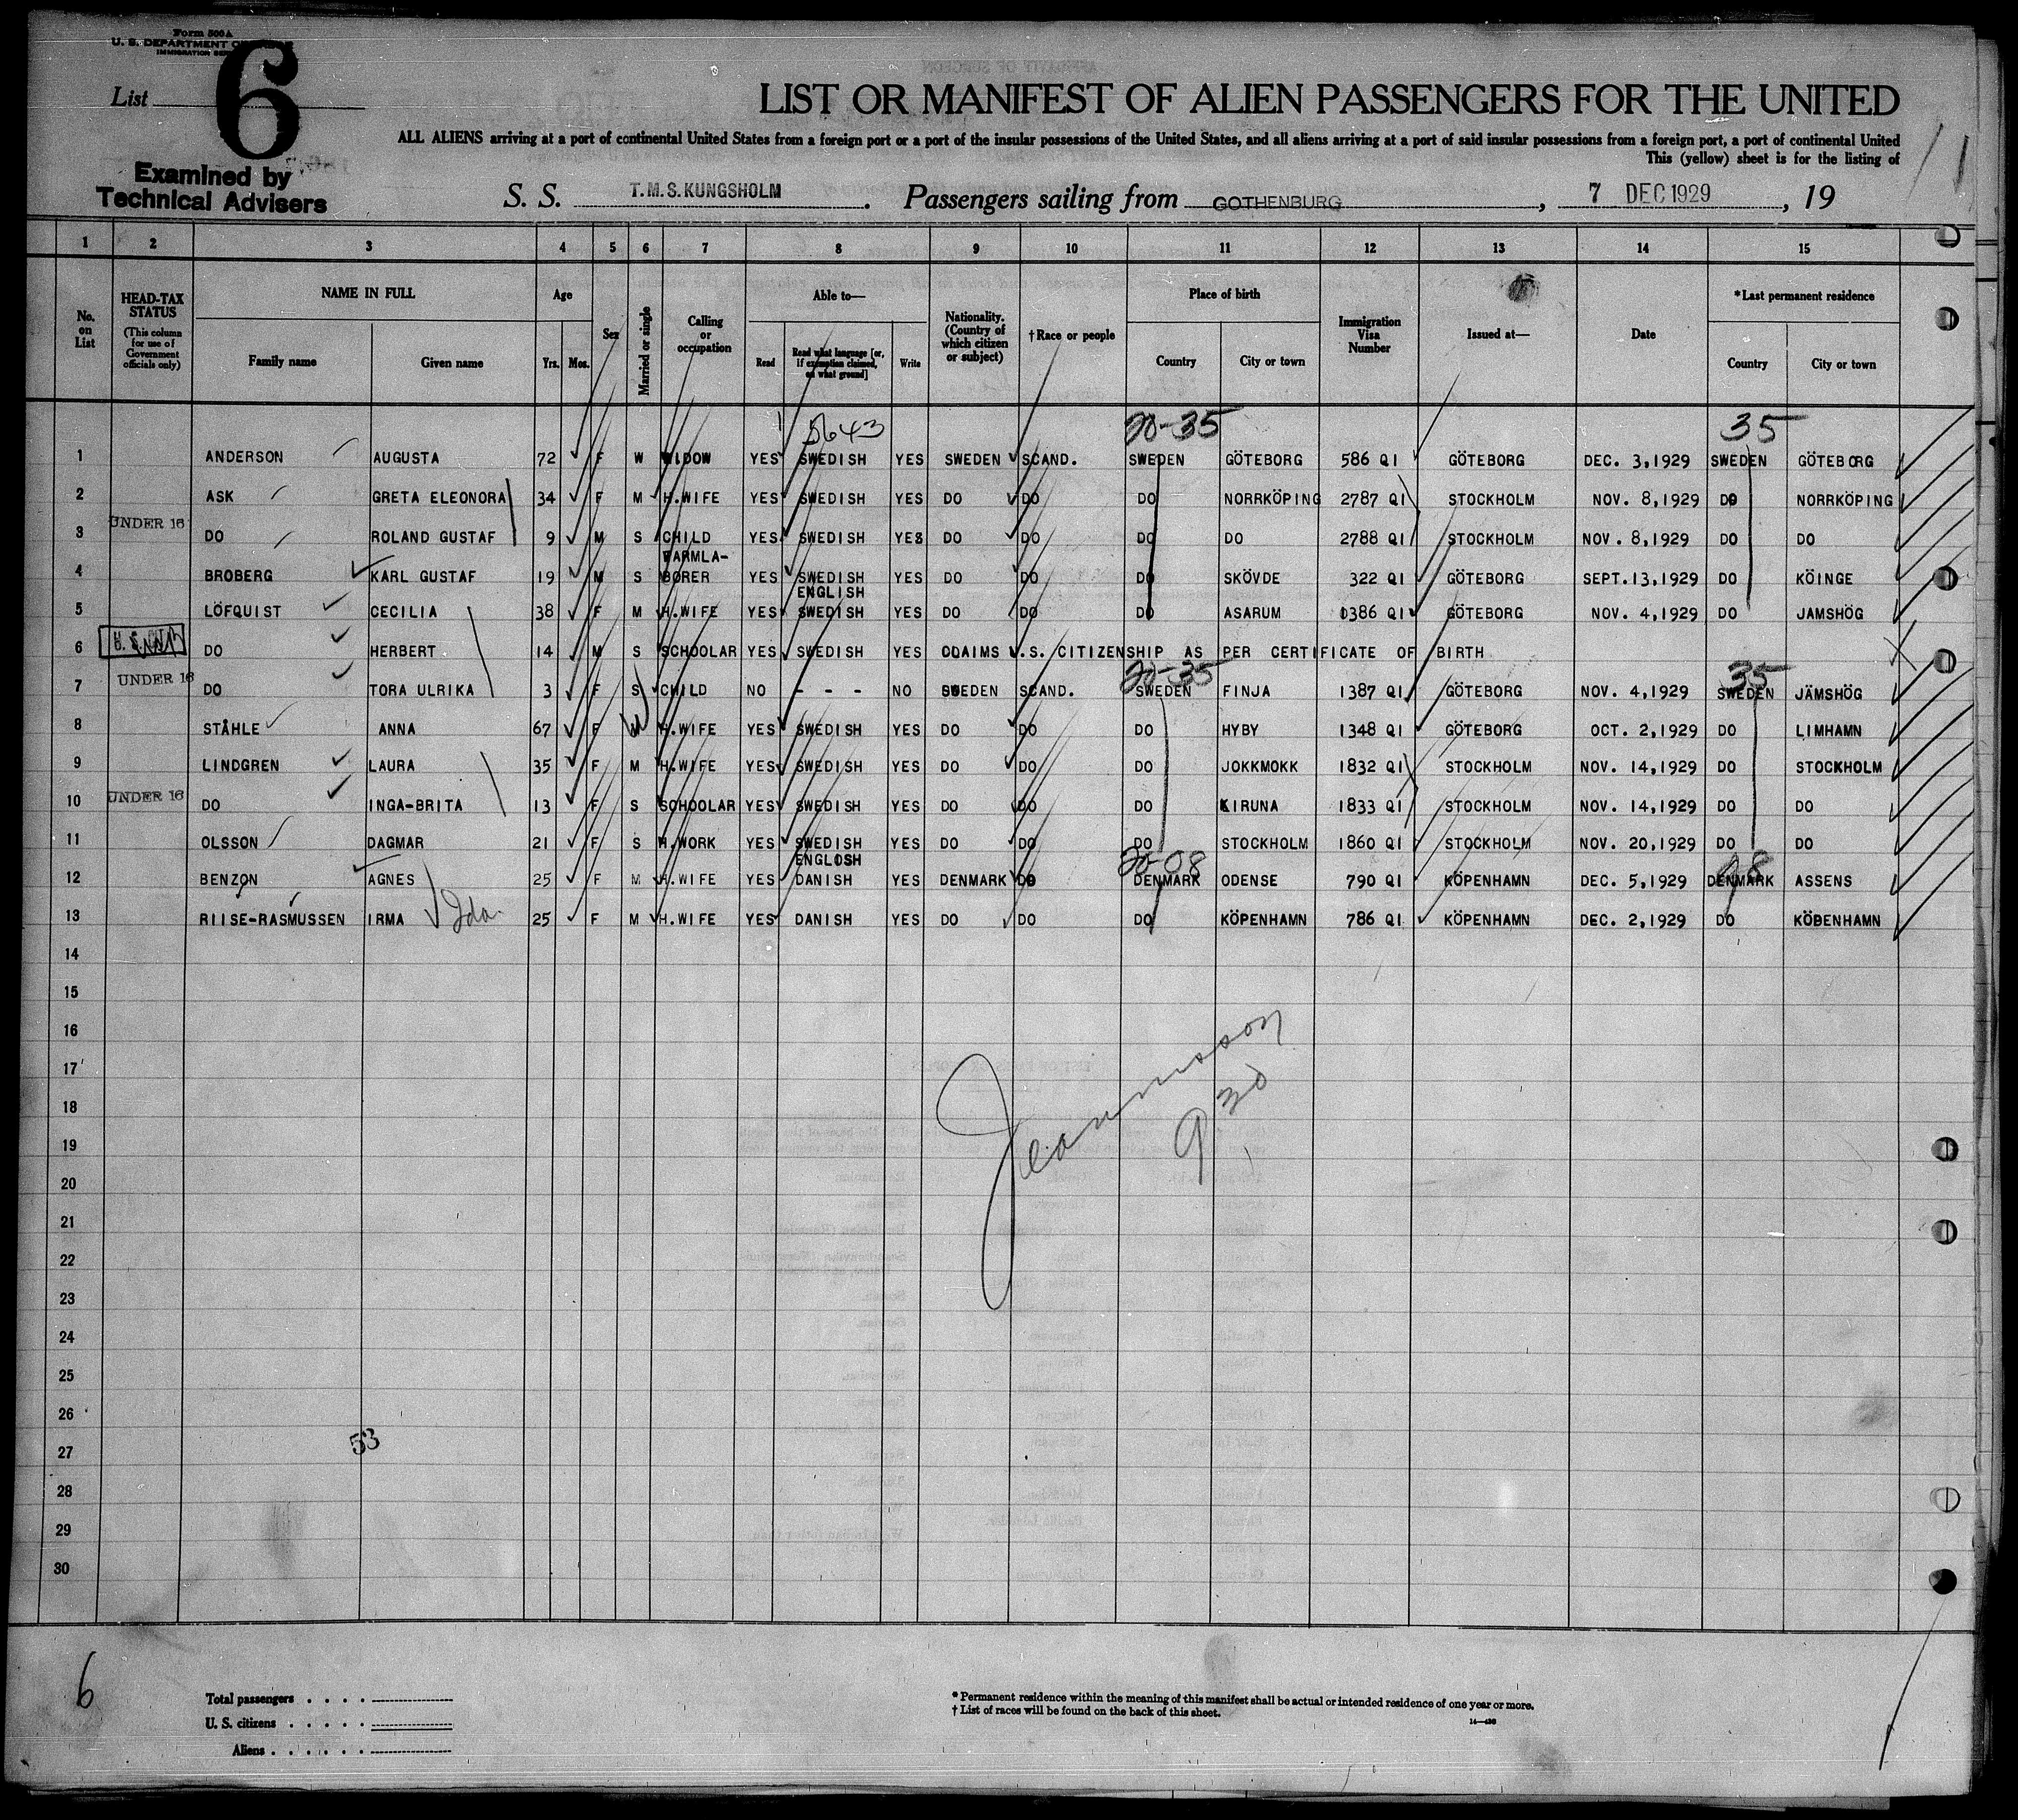 Form 500 A
U. S. DEPARTMENT OF
IMMIGRATION
List 6
LIST OR MANIFEST OF ALIEN PASSENGERS FOR THE UNITED
ALL ALIENS arriving at a port of continental United States from a foreign port or a port of the insular possessions of the United States, and all aliens arriving at a port of said insular possessions from a foreign port, a port of continental United
This (yellow) sheet is for the listing of
Examined by
Technical Advisers
S. S. T.M.S.KUNGSHOLM . Passengers sailing from GOTHENBURG , 7 DEC 1929 , 19
1 2 3 4 5 6 7 8 9 10 11 12 13 14 15
No. on List
HEAD-TAX STATUS (This column for use of Government officials only)
NAME IN FULL Family name Given name
Age Yrs. Mos.
Sex
Married or single
Calling or occupation
Able to— Read Read what language [or, if exemption claimed, on what ground] Write
Nationality. (Country of which citizen or subject)
† Race or people
Place of birth Country City or town
Immigration Visa Number
Issued at—
Date
*Last permanent residence Country City or town
5643 20-35 35
1 ANDERSON AUGUSTA 72 F W WIDOW YES SWEDISH YES SWEDEN SCAND. SWEDEN GÖTEBORG 586 QI GÖTEBORG DEC. 3,1929 SWEDEN GÖTEBORG
2 ASK GRETA ELEONORA 34 F M H.WIFE YES SWEDISH YES DO DO DO NORRKÖPING 2787 QI STOCKHOLM NOV. 8,1929 DO NORRKÖPING
UNDER 16
3 DO ROLAND GUSTAF 9 M S CHILD YES SWEDISH YES DO DO DO DO 2788 QI STOCKHOLM NOV. 8,1929 DO DO
FARMLA-
4 BROBERG KARL GUSTAF 19 M S BORER YES SWEDISH YES DO DO DO SKÖVDE 322 QI GÖTEBORG SEPT.13,1929 DO KÖINGE
ENGLISH
5 LÖFQUIST CECILIA 38 F M H.WIFE YES SWEDISH YES DO DO DO ASARUM 1386 QI GÖTEBORG NOV. 4,1929 DO JAMSHÖG
6 DO HERBERT 14 M S SCHOOLAR YES SWEDISH YES CLAIMS U.S. CITIZENSHIP AS PER CERTIFICATE OF BIRTH
UNDER 16 20-35 35
7 DO TORA ULRIKA 3 F S CHILD NO - - - NO SWEDEN SCAND. SWEDEN FINJA 1387 QI GÖTEBORG NOV. 4,1929 SWEDEN JÄMSHÖG
8 STÅHLE ANNA 67 F W H.WIFE YES SWEDISH YES DO DO DO HYBY 1348 QI GÖTEBORG OCT. 2,1929 DO LIMHAMN
9 LINDGREN LAURA 35 F M H.WIFE YES SWEDISH YES DO DO DO JOKKMOKK 1832 QI STOCKHOLM NOV. 14,1929 DO STOCKHOLM
UNDER 16
10 DO INGA-BRITA 13 F S SCHOOLAR YES SWEDISH YES DO DO DO KIRUNA 1833 QI STOCKHOLM NOV. 14,1929 DO DO
11 OLSSON DAGMAR 21 F S H.WORK YES SWEDISH YES DO DO DO STOCKHOLM 1860 QI STOCKHOLM NOV. 20,1929 DO DO
ENGLOSH 20-08 08
12 BENZON AGNES 25 F M H.WIFE YES DANISH YES DENMARK DO DENMARK ODENSE 790 QI KÖPENHAMN DEC. 5,1929 DENMARK ASSENS
13 RIISE-RASMUSSEN IRMA Ida. 25 F M H.WIFE YES DANISH YES DO DO DO KÖPENHAMN 786 QI KÖPENHAMN DEC. 2,1929 DO KÖBENHAMN
14
15
16
17
18
19
20
21
22
23
24
25
26
27
28
29
30
930
53
6
Total passengers
U. S. citizens
Aliens
* Permanent residence within the meaning of this manifest shall be actual or intended residence of one year or more.
† List of races will be found on the back of this sheet.